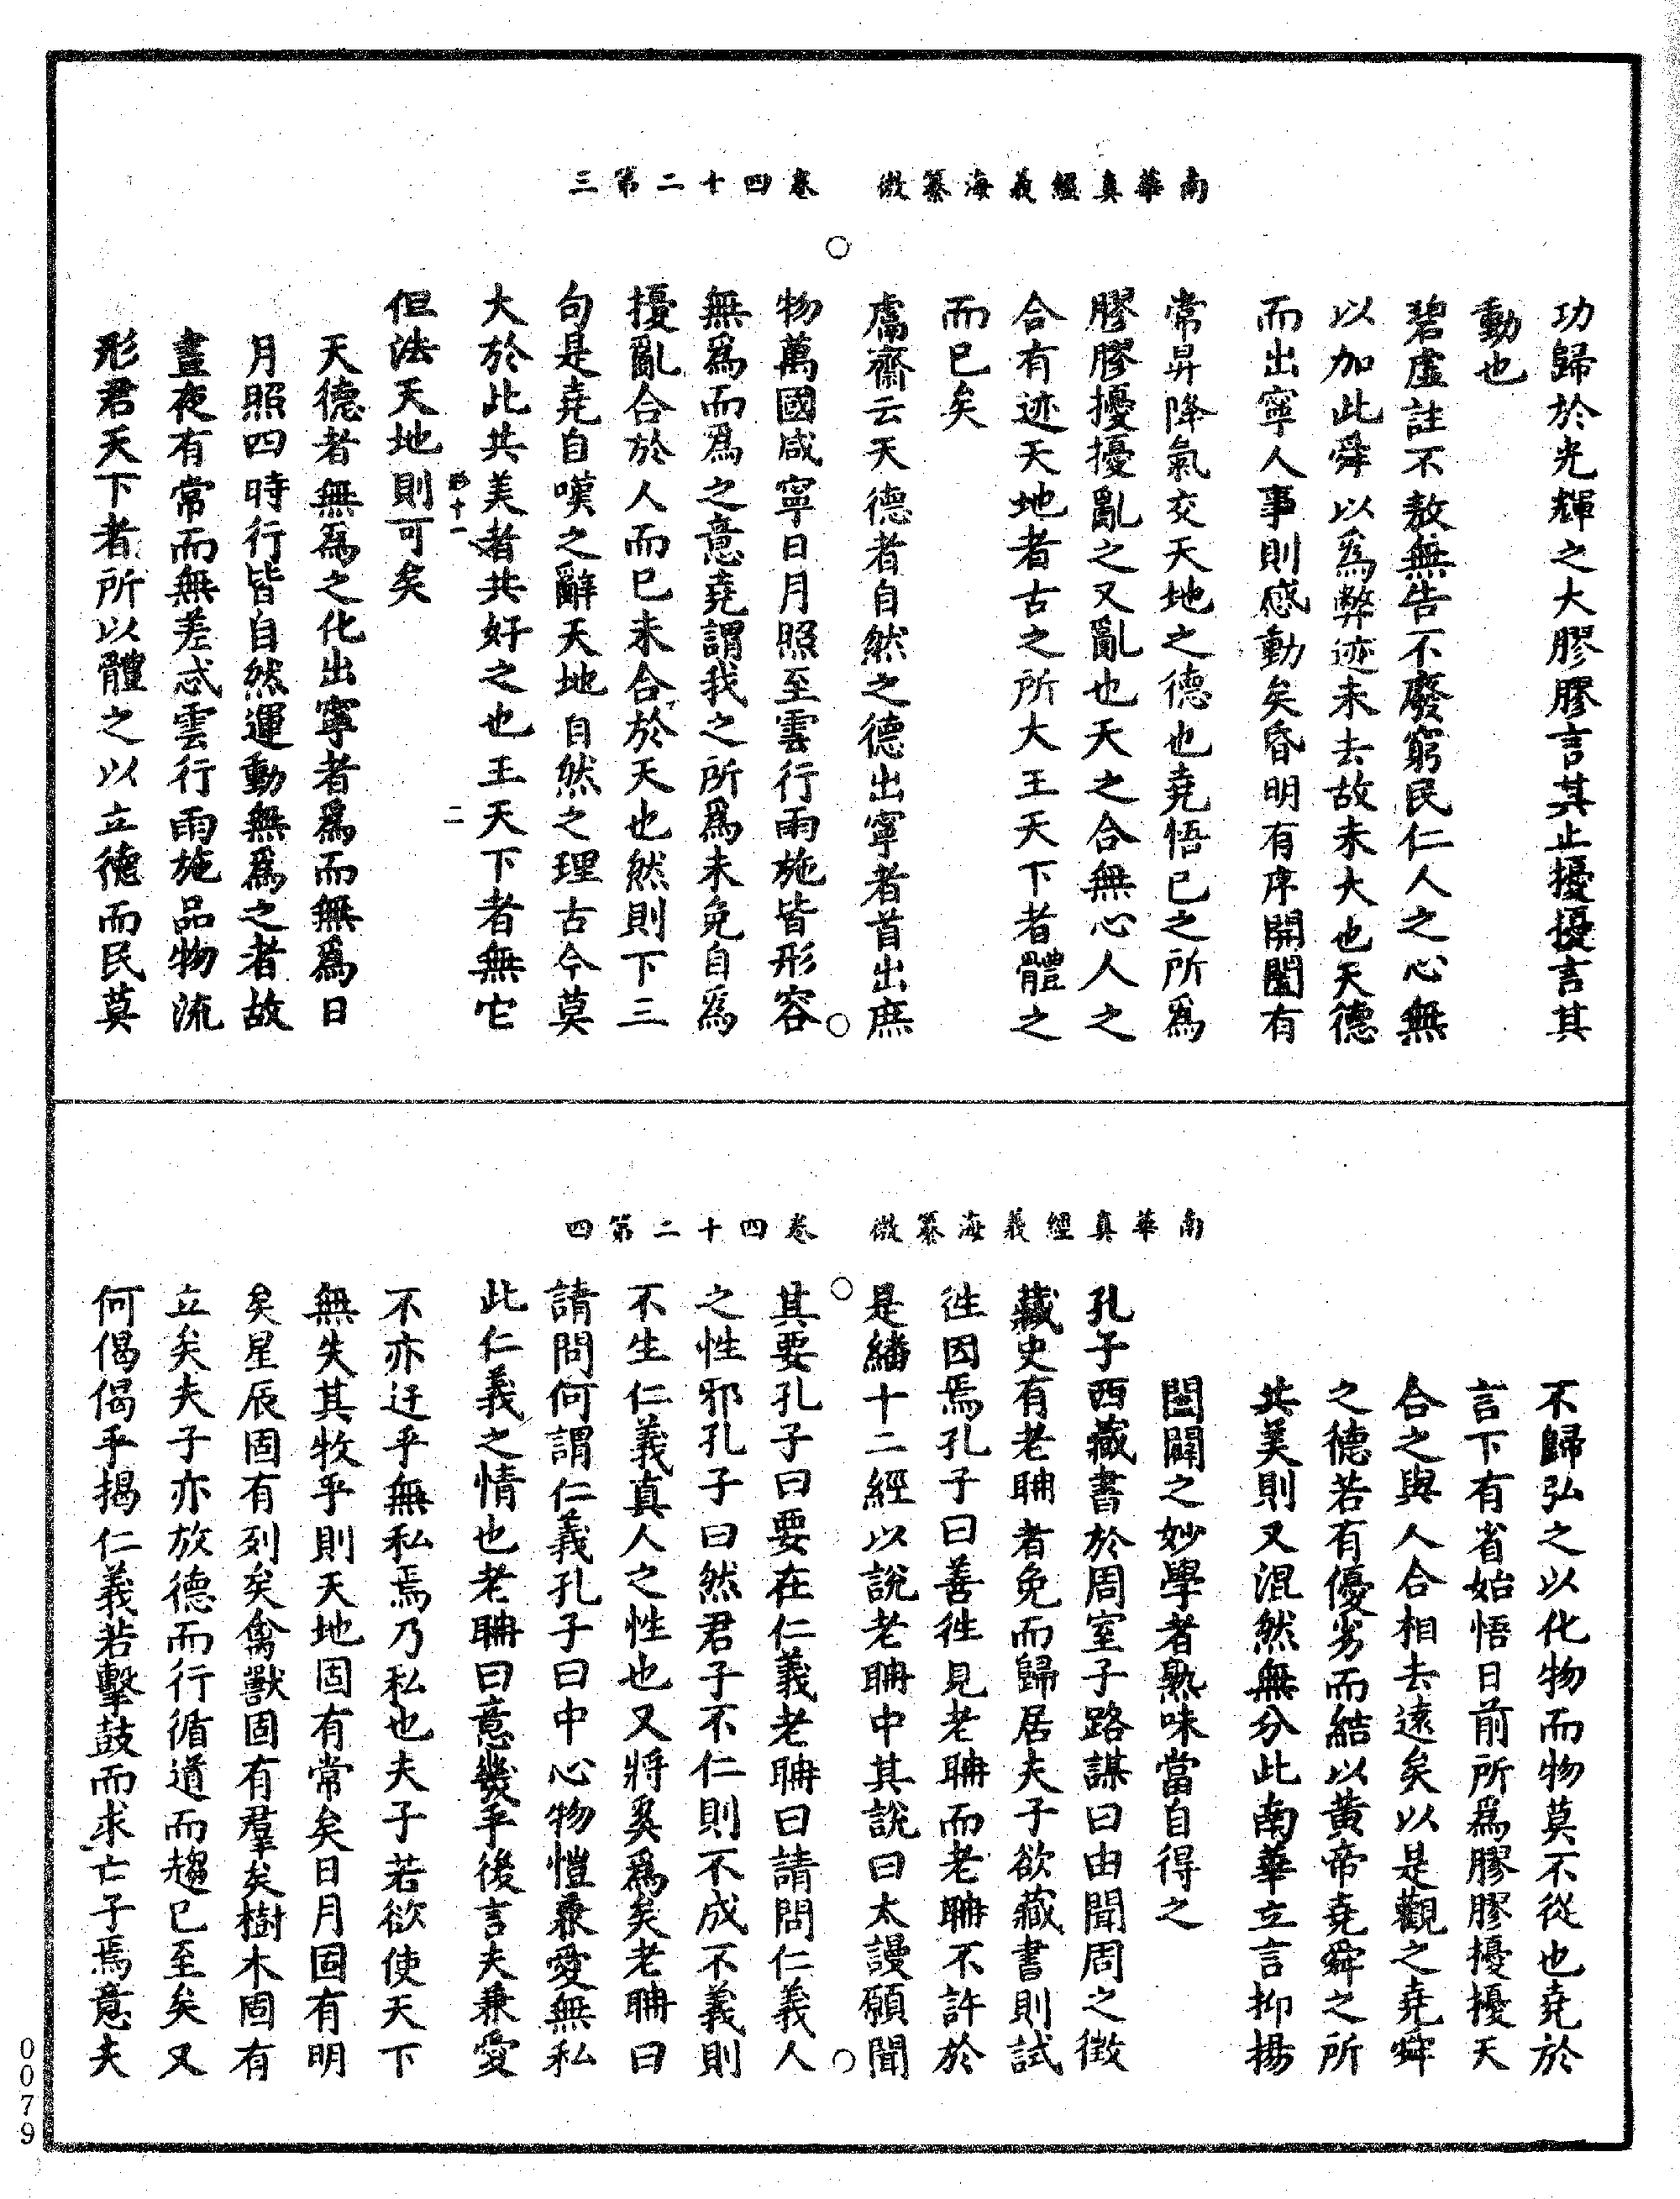 南華真經義海纂微　卷四十二第三
功歸於光輝之大膠膠言其止擾擾言其
動也
碧虛註不敖無告不廢窮民仁人之心無
以加此舜以爲弊迹未去故未大也天德
而出寧人事則感動矣昏明有序開闔有
常昇降氣交天地之德也堯悟已之所爲
膠膠擾擾亂之又亂也天之合無心人之
合有迹天地者古之所大王天下者體之
而已矣
鬳齋云天德者自然之德出寧者首出庶
物萬國咸寧日月照至雲行雨施皆形容
無爲而爲之意堯謂我之所爲未免自爲
擾亂合於人而已未合於天也然則下三
句是堯自嘆之辭天地自然之理古今莫
大於此共美者共好之也王天下者無它
十一
二
但法天地則可矣
天德者無爲之化出寧者爲而無爲日
月照四時行皆自然運動無爲之者故
晝夜有常而無差忒雲行雨施品物流
形君天下者所以體之以立德而民莫
南華真經義海纂微　卷四十二第四
不歸弘之以化物而物莫不從也堯於
言下有省始悟日前所爲膠膠擾擾天
合之與人合相去遠矣以是觀之堯舜
之德若有優劣而結以黄帝堯舜之所
共美則又混然無分此南華立言抑揚
闔闢之妙學者熟味當自得之
孔子西藏書於周室子路謀曰由聞周之徵
藏史有老聃者免而歸居夫子欲藏書則試
徃因焉孔子曰善徃見老聃而老聃不許於
是繙十二經以說老聃中其說曰太謾願聞
其要孔子曰要在仁義老聃曰請問仁義人
之性邪孔子曰然君子不仁則不成不義則
不生仁義真人之性也又將奚爲矣老聃曰
請問何謂仁義孔子曰中心物愷兼愛無私
此仁義之情也老聃曰意幾乎後言夫兼愛
不亦迂乎無私焉乃私也夫子若欲使天下
無失其牧乎則天地固有常矣日月固有明
矣星辰固有列矣禽獸固有羣矣樹木固有
立矣夫子亦放德而行循道而趨已至矣又
何偈偈乎揭仁義若擊鼓而求亡子焉意夫
0079